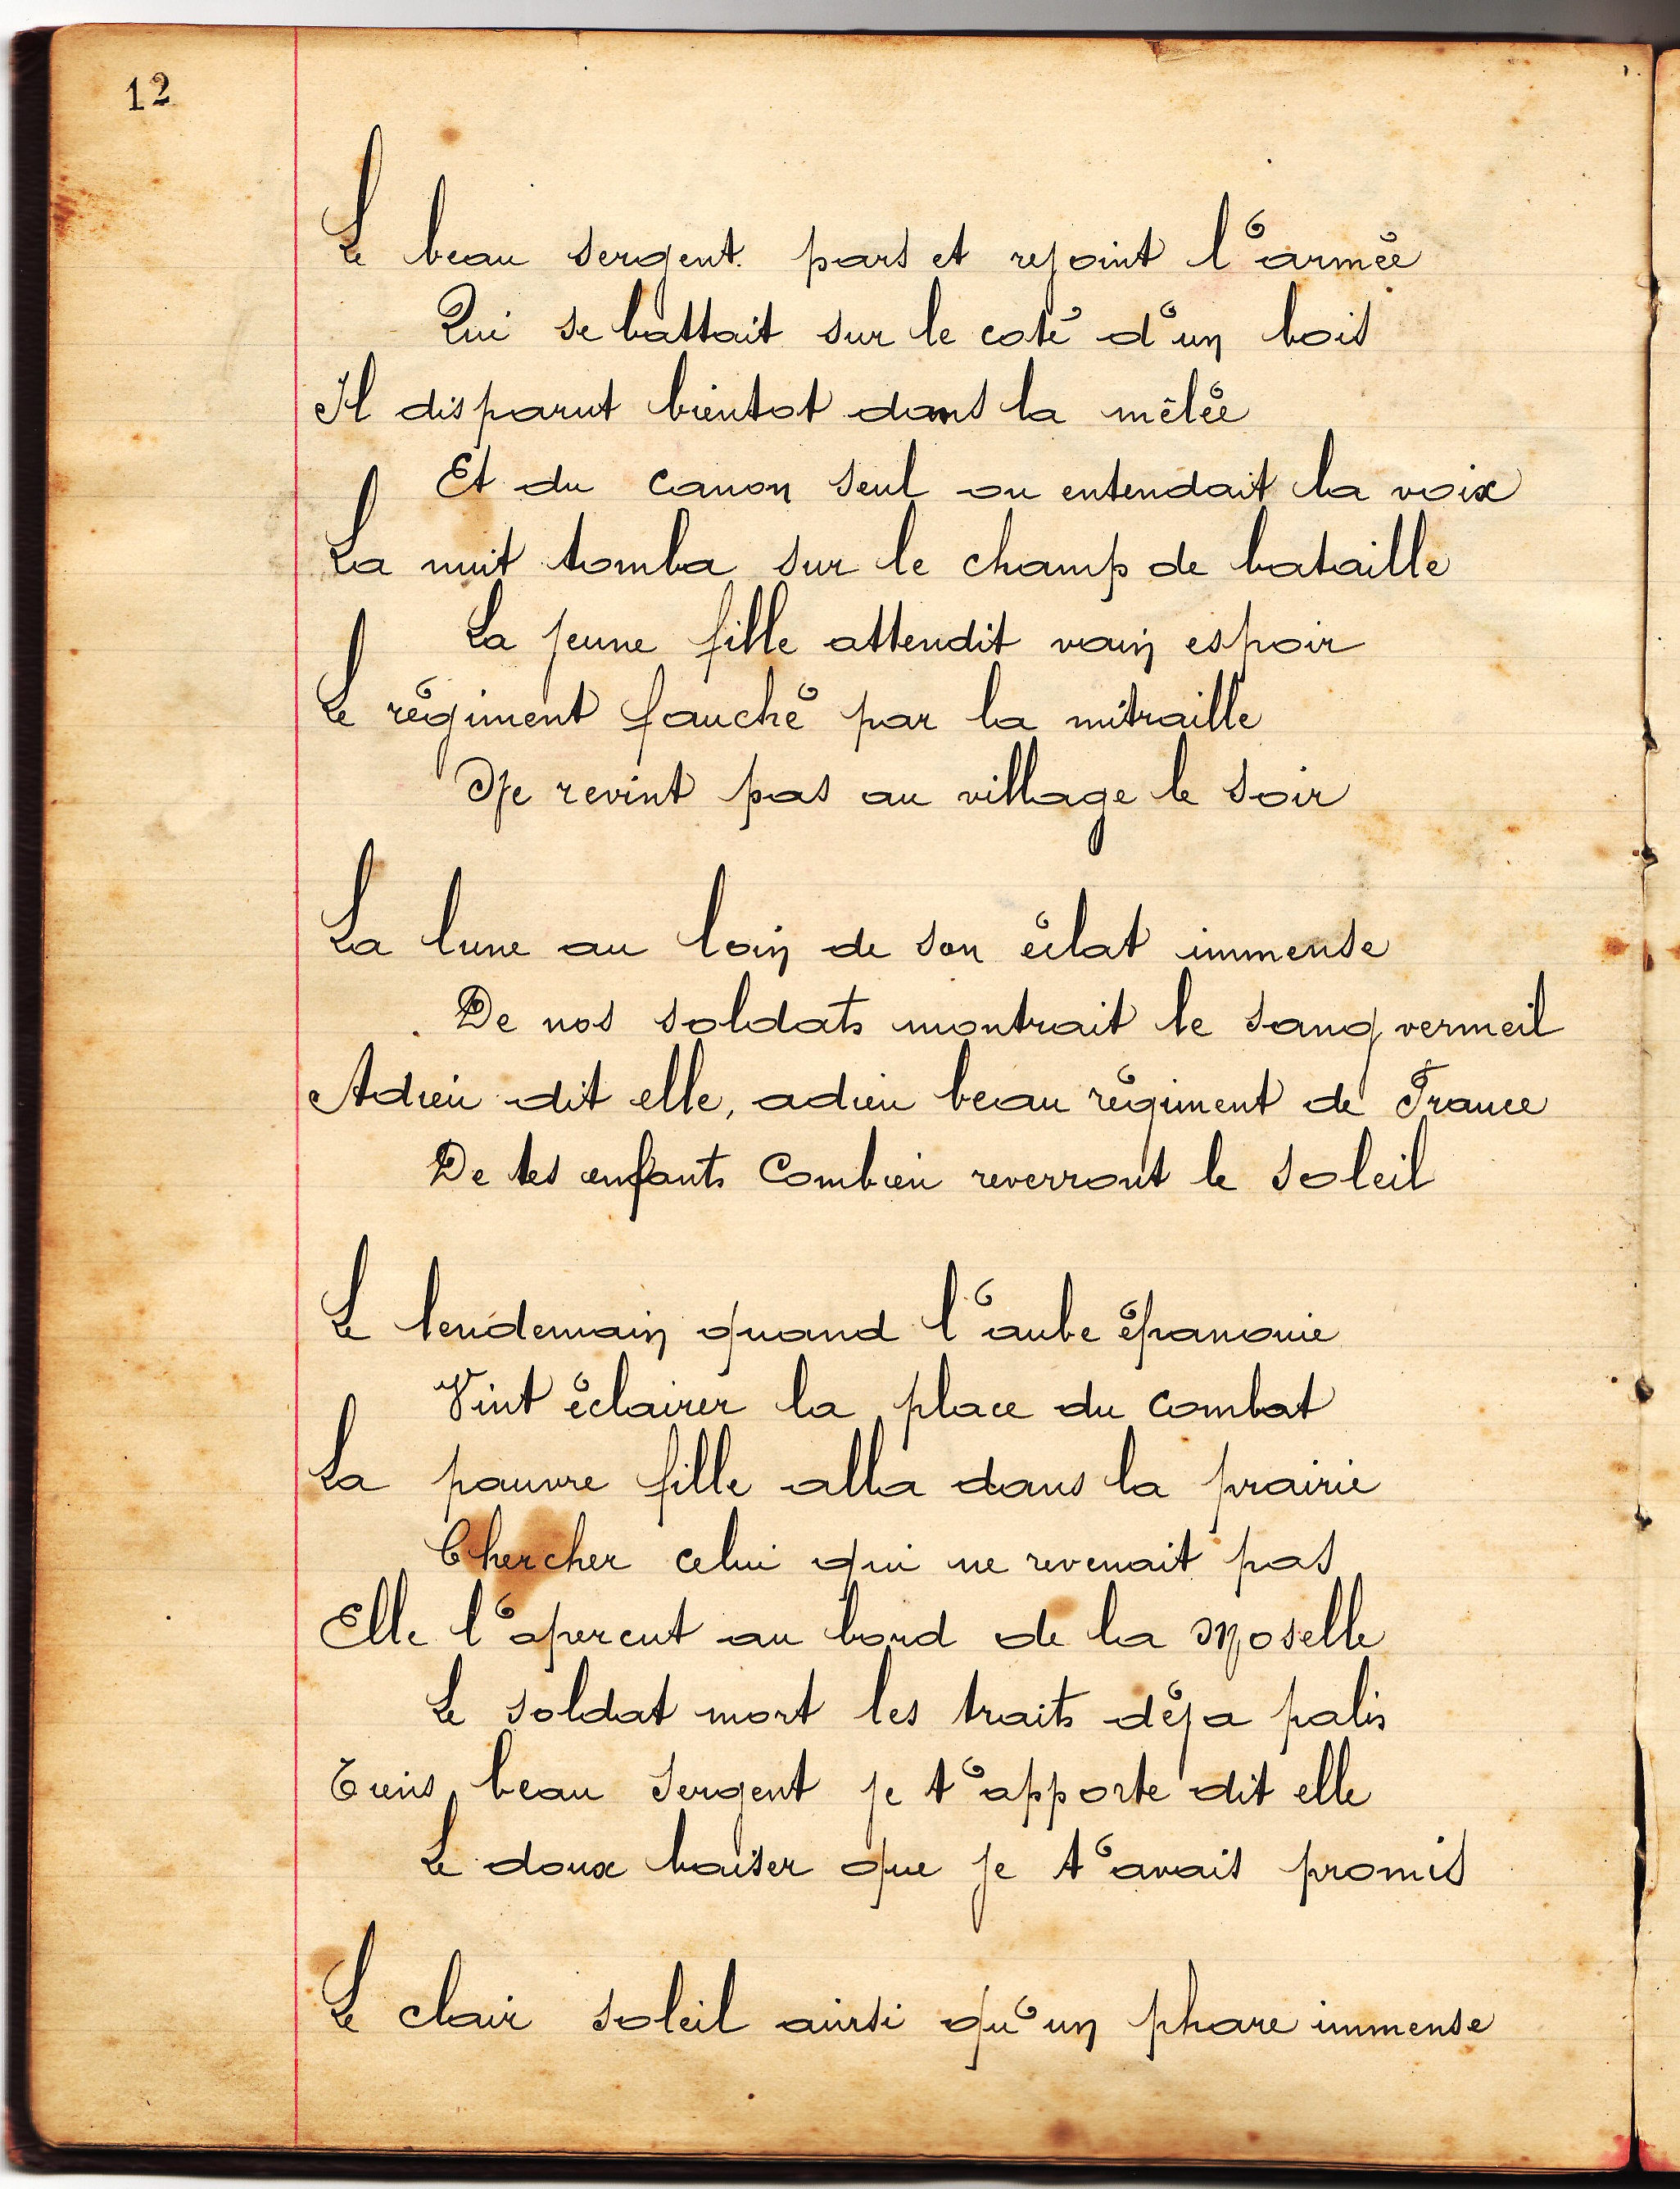 12
Le beau sergent. pars et rejoint l'armée
Qui se battait sur le coté d'un bois
Il disparut bientot dans la mêlée
Et du canon seul on entendait la voix
La nuit tomba sur le champ de bataille
La jeune fille attendit vain espoir
Le régiment fauché par la mitraille
Ne revint pas au village le soir
La lune au loin de son éclat immense
De nos soldats montrait le sang vermeil
Adieu dit elle, adieu beau régiment de France
De tes enfants Combien reverront le soleil
Le lendemain quand l'aube épanouie
Vint éclairer la place du combat
La pauvre fille alla dans la prairie
Chercher celui qui ne revenait pas
Elle l'apercut au bord de la Moselle
Le soldat mort les traits déja palis
Tiens beau sergent je t'apporte dit elle
Le doux baiser que je t'avais promis
Le clair soleil ainsi qu'un phare immense